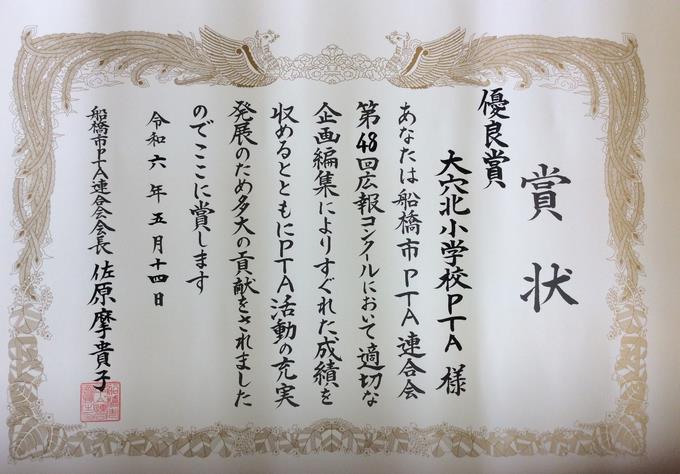 賞状
優良賞
大穴北小学校PTA 様
あなたは船橋市PTA連合会
第48回広報コンクールにおいて適切な
企画編集によりすぐれた成績を
収めるとともにPTA活動の充実
発展のため多大の貢献をされました
のでここに賞します
令和六年五月十四日
船橋市PTA連合会会長 佐原摩貴子